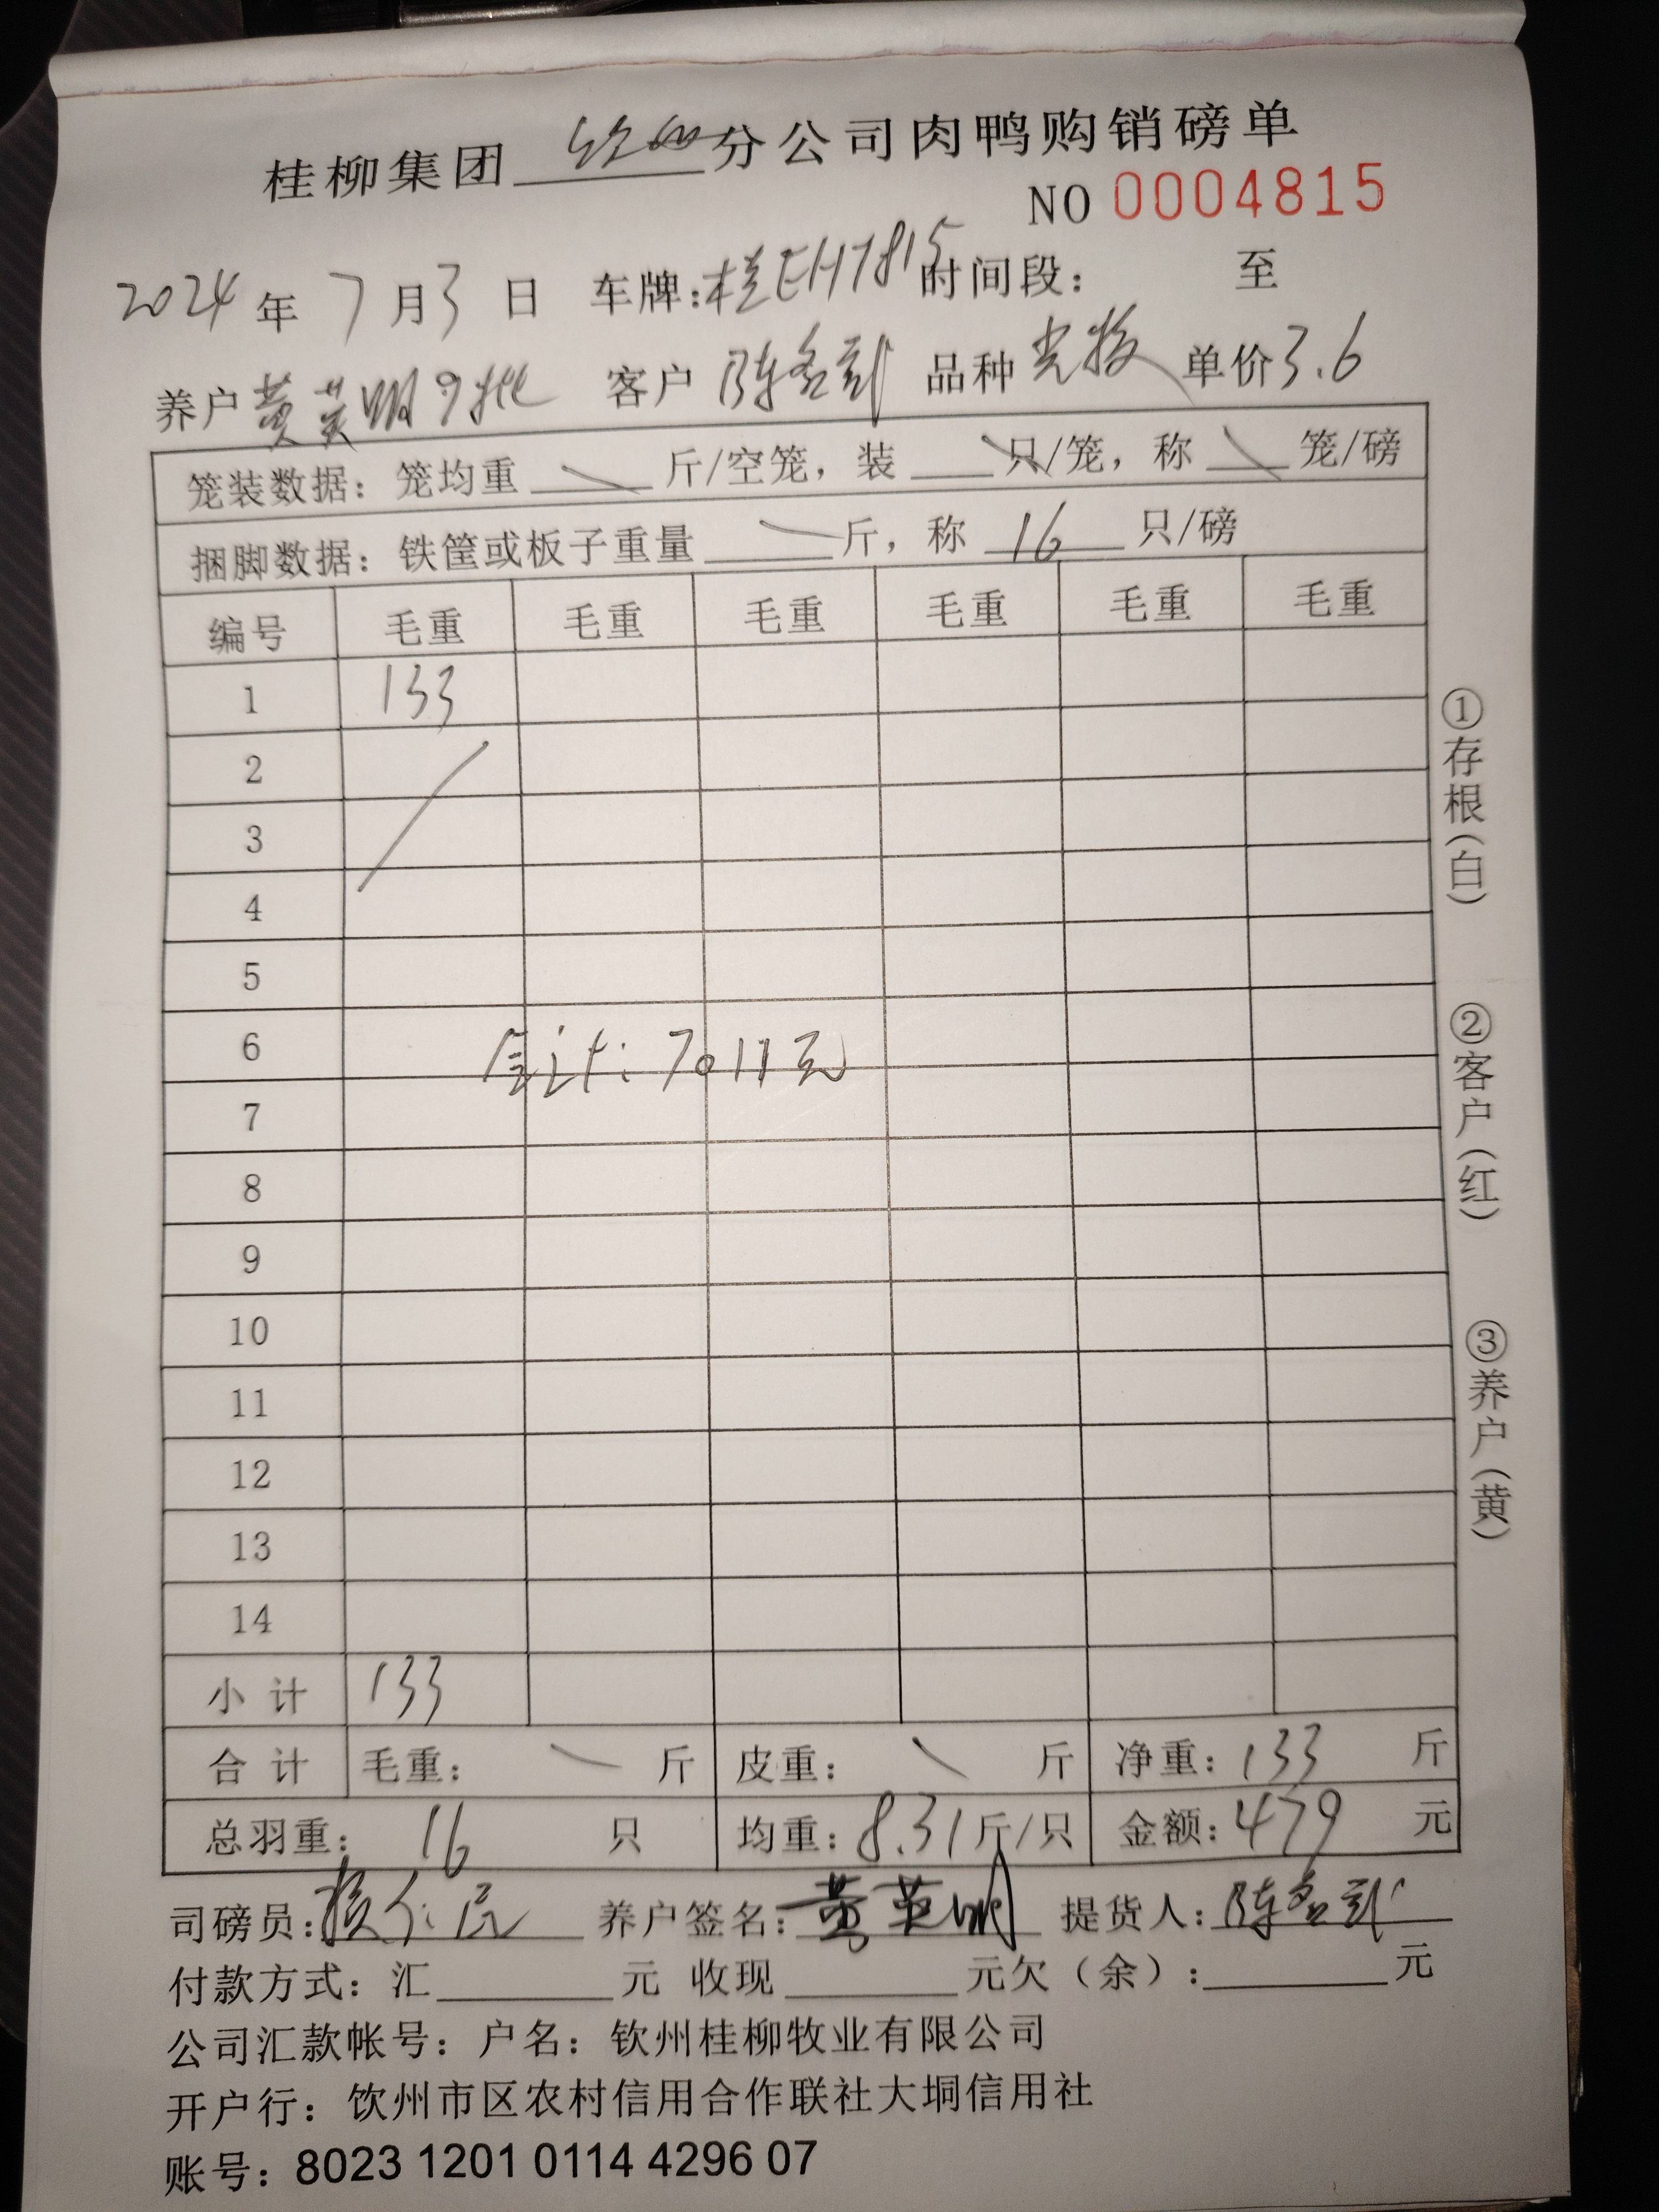 桂柳集团 钦州 分公司肉鸭购销磅单
NO 0004815
2024 年 7 月 3 日 车牌:桂EH7815 时间段: 至
养户 黄英明9批 客户 陈名武 品种 单价 3.6
笼装数据: 笼均重 斤/空笼, 装 只/笼, 称 笼/磅
捆脚数据: 铁筐或板子重量 斤, 称 16 只/磅
编号 毛重 毛重 毛重 毛重 毛重 毛重
1 133
2
3
4
5
6
合计: 7011元
7
8
9
10
11
12
13
14
小计 133
合计 毛重: 斤 皮重: 斤 净重: 133 斤
总羽重: 16 只 均重: 8.31 斤/只 金额: 479 元
司磅员: 养户签名: 黄英明 提货人: 陈名武
付款方式: 汇 元 收现 元欠(余): 元
公司汇款帐号: 户名: 钦州桂柳牧业有限公司
开户行: 钦州市区农村信用合作联社大垌信用社
账号: 8023 1201 0114 4296 07
①存根(白)
②客户(红)
③养户(黄)